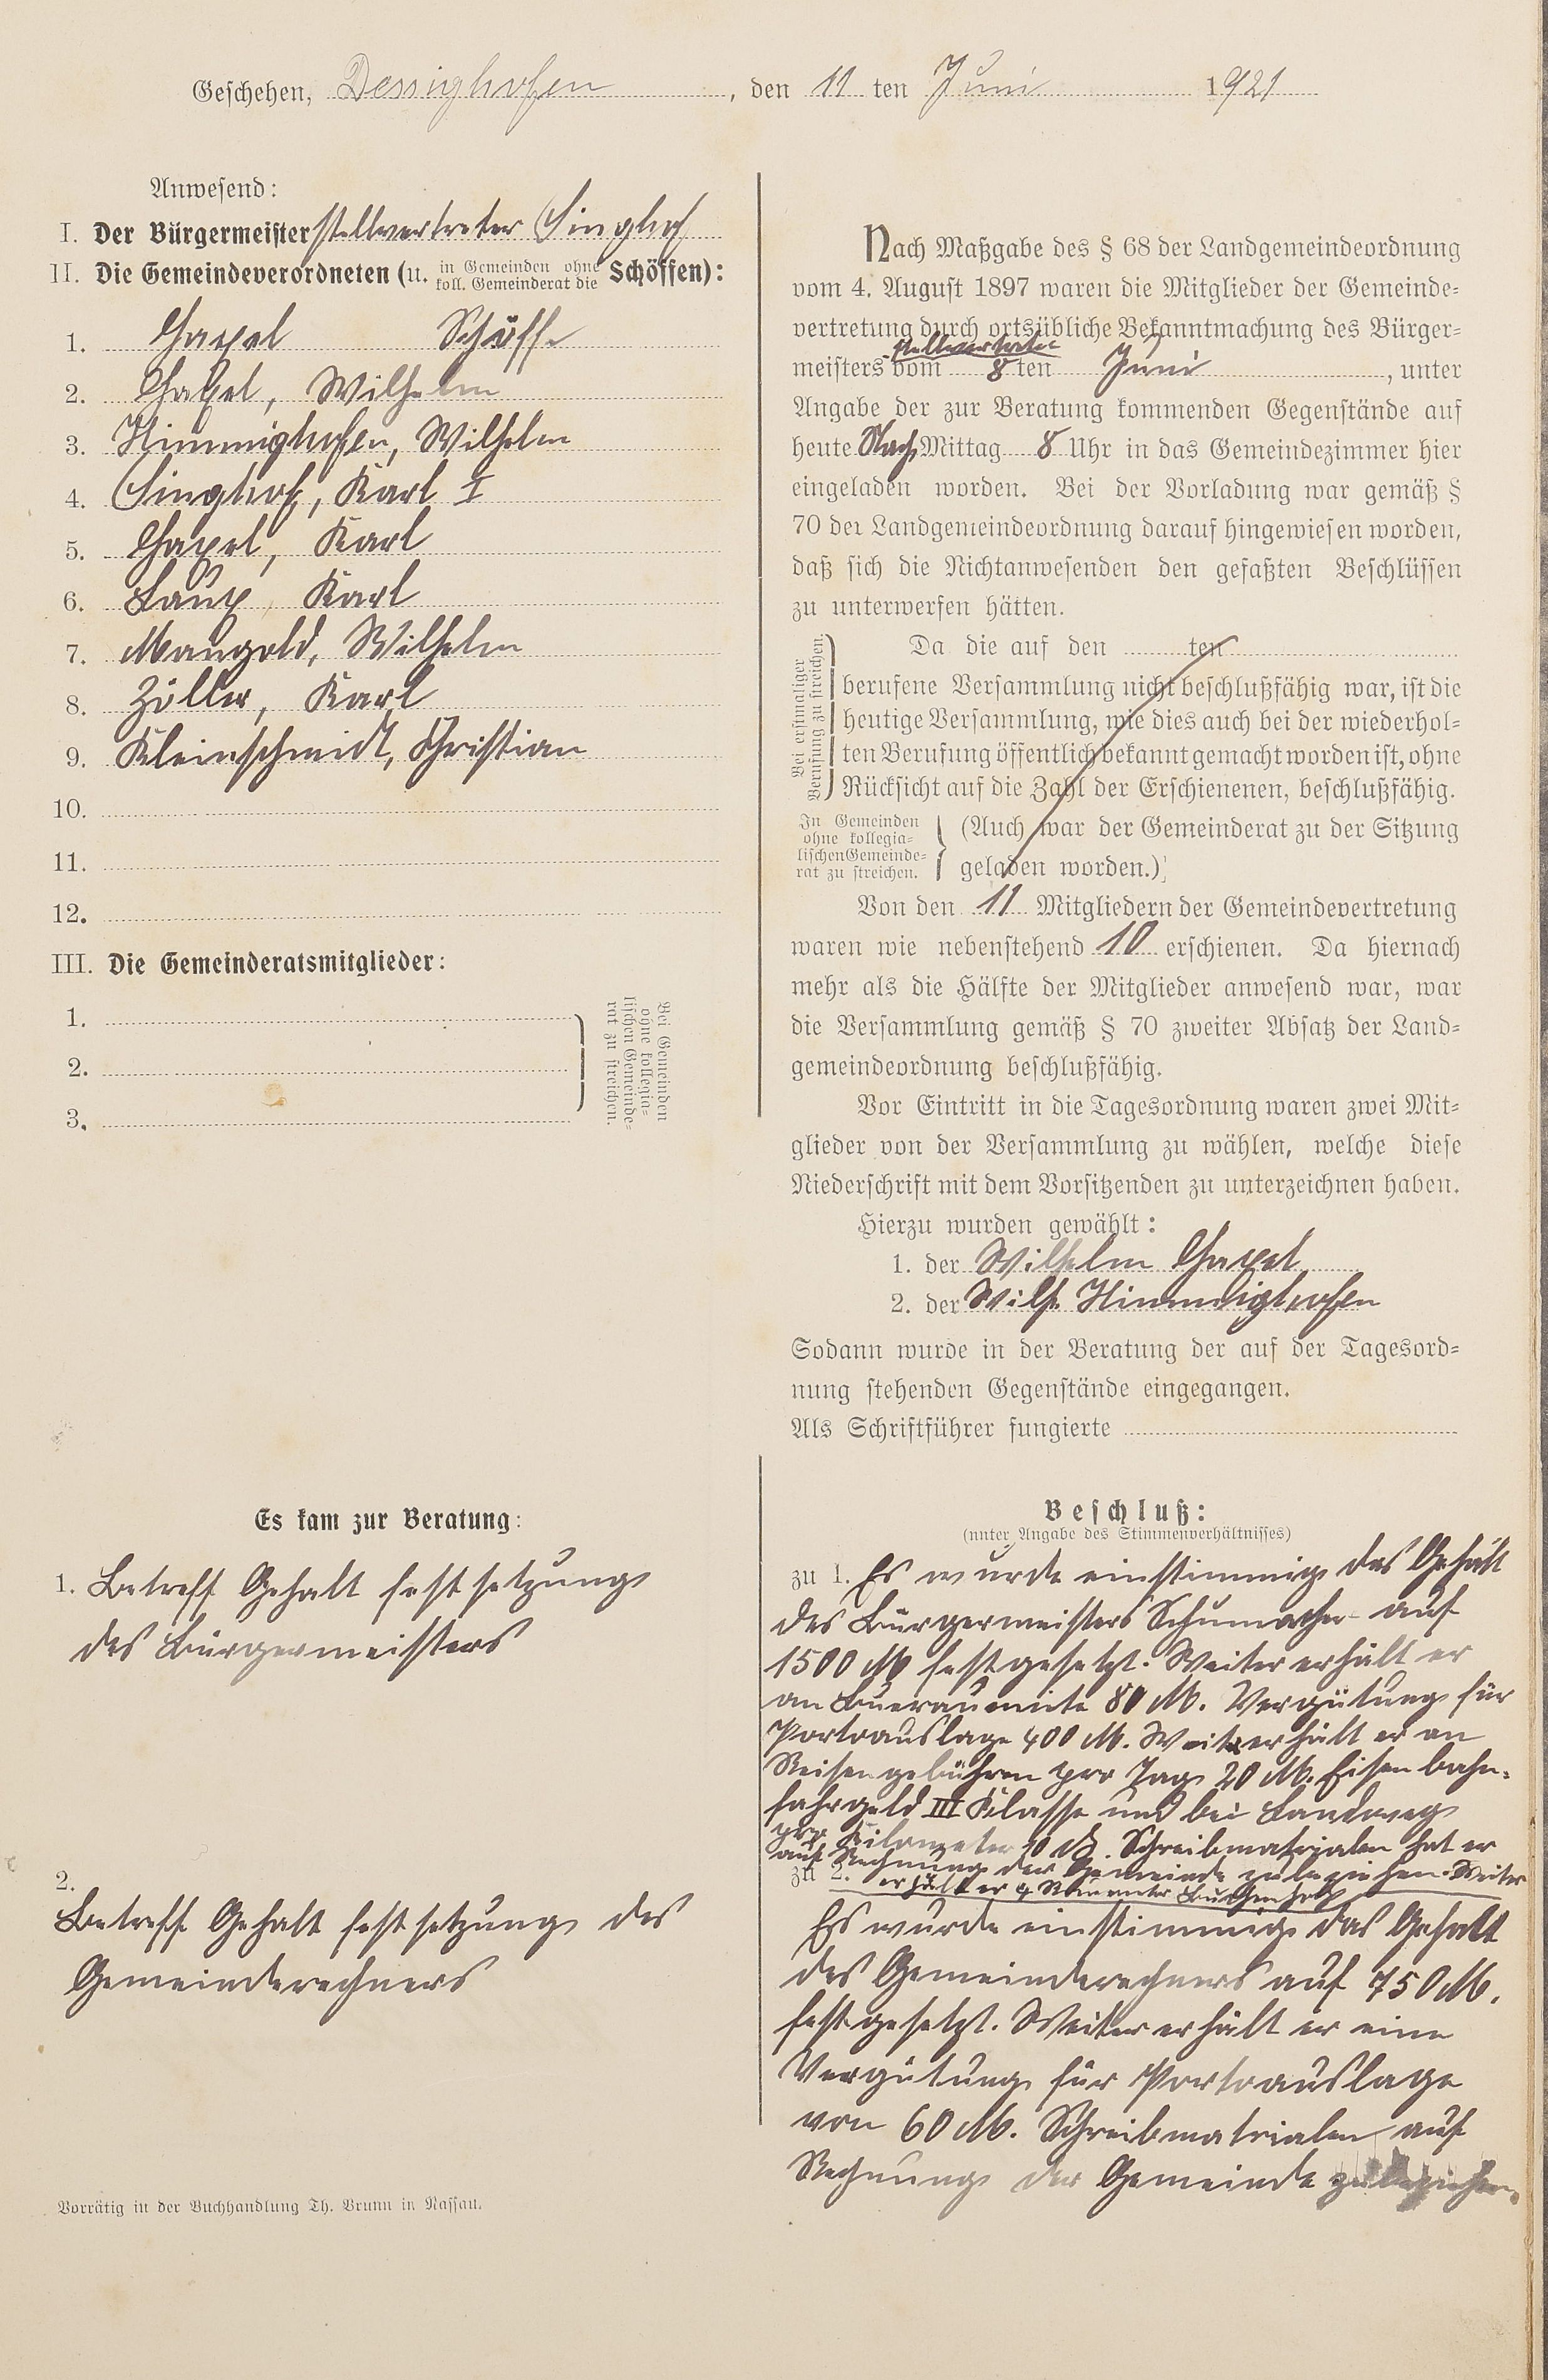 Geschehen, Dessighofen, den 11 ten Juni 1921
Anwesend:
I. Der Bürgermeisterstellvertreter Singhof
II. Die Gemeindeverordneten (u. in Gemeinden ohne koll. Gemeinderat die Schöffen):
1. Gapel Schöffe
2. Gapel, Wilhelm
3. Himmighofen, Wilhelm
4. Singhof, Karl I
5. Gapel, Karl
6. Laux, Karl
7. Mangold, Wilhelm
8. Zöller, Karl
9. Kleinschmidt, Christian
10.
11.
12.
III. Die Gemeinderatsmitglieder:
1.
2.
3.
Bei Gemeinden
ohne kollegia-
lischen Gemeinde-
rat zu streichen.
Nach Maßgabe des § 68 der Landgemeindeordnung
vom 4. August 1897 waren die Mitglieder der Gemeinde-
vertretung durch ortsübliche Bekanntmachung des Bürger-
meisters stellvertreter vom 8 ten Juni, unter
Angabe der zur Beratung kommenden Gegenstände auf
heute Nach Mittag 8 Uhr in das Gemeindezimmer hier
eingeladen worden. Bei der Vorladung war gemäß §
70 der Landgemeindeordnung darauf hingewiesen worden,
daß sich die Nichtanwesenden den gefaßten Beschlüssen
zu unterwerfen hätten.
Bei erstmaliger
Berufung zu streichen.
Da die auf den ten
berufene Versammlung nicht beschlußfähig war, ist die
heutige Versammlung, wie dies auch bei der wiederhol-
ten Berufung öffentlich bekannt gemacht worden ist, ohne
Rücksicht auf die Zahl der Erschienenen, beschlußfähig.
In Gemeinden
ohne kollegia-
lischen Gemeinde-
rat zu streichen.
(Auch war der Gemeinderat zu der Sitzung
geladen worden.)
Von den 11 Mitgliedern der Gemeindevertretung
waren wie nebenstehend 10 erschienen. Da hiernach
mehr als die Hälfte der Mitglieder anwesend war, war
die Versammlung gemäß § 70 zweiter Absatz der Land-
gemeindeordnung beschlußfähig.
Vor Eintritt in die Tagesordnung waren zwei Mit-
glieder von der Versammlung zu wählen, welche diese
Niederschrift mit dem Vorsitzenden zu unterzeichnen haben.
Hierzu wurden gewählt:
1. der Wilhelm Gapel
2. der Wilh. Himmighofen
Sodann wurde in der Beratung der auf der Tagesord-
nung stehenden Gegenstände eingegangen.
Als Schriftführer fungierte
Es kam zur Beratung:
1. Betreff Gehalt festsetzung
des Bürgermeisters
2.
Betreff Gehalt festsetzung des
Gemeinderechners
Beschluß:
(unter Angabe des Stimmenverhältnisses)
zu 1. Es wurde einstimmig das Gehalt
des Bürgermeisters Schumacher auf
1500 M festgesetzt. Weiter erhält er
an Bueraumite 80 M. Vergütung für
Portoauslage 400 M. Weiter erhält er an
Reisengebühren pro Tag 20 M. Eisenbahn-
fahrgeld III Klasse und bei Landweg
pro Kilometer Schreibmatrialen hat er
auf Rechnung der Gemeinde zubeziehen. Weiter
zu 2. erhält er 4 Raummeter Buchenholz
Es wurde einstimmig das Gehalt
des Gemeinderechners auf 750 M.
festgesetzt. Weiter erhält er eine
Vergütung für Portoauslage
von 60 M. Schreibmatrialen auf
Rechnung der Gemeinde zubeziehen.
Vorrätig in der Buchhandlung Th. Brunn in Nassau.